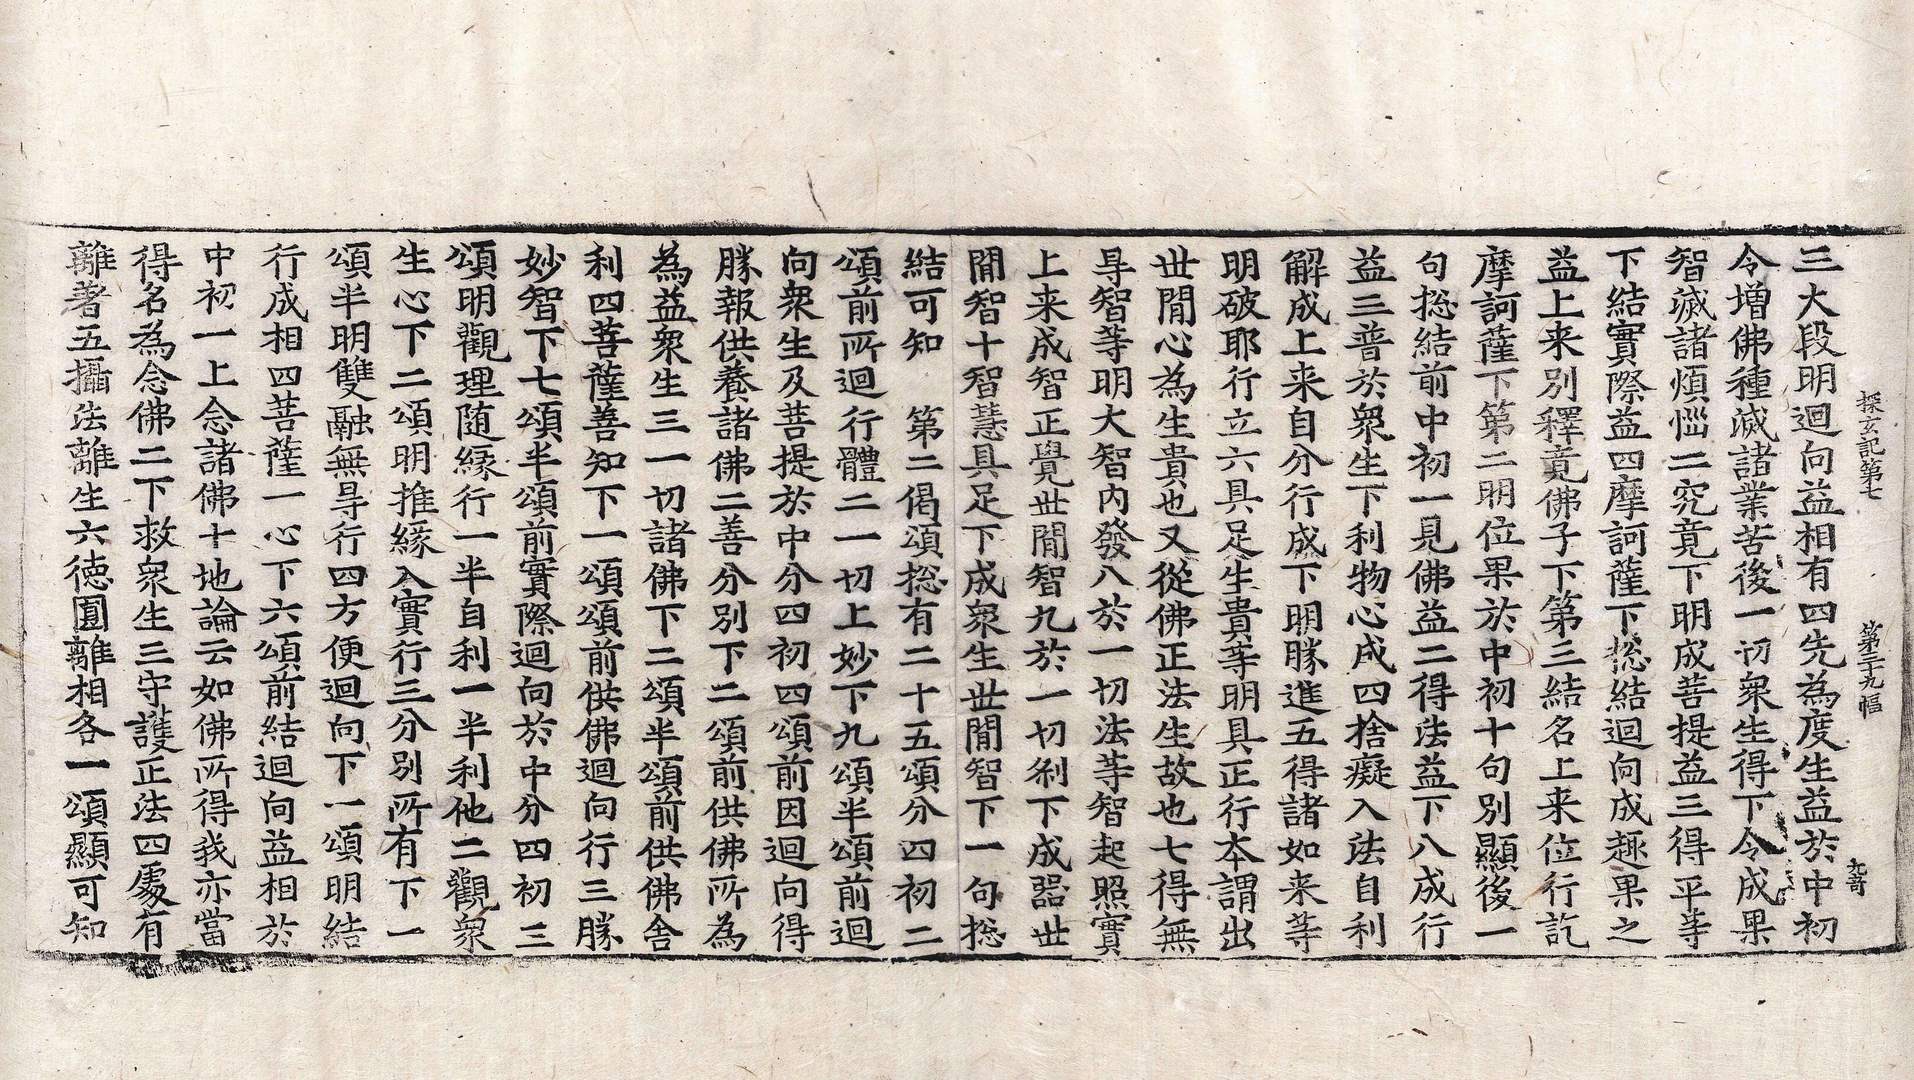 探玄記第七　第三十九幅　九奇
三大段明迴向益相有四先為度生益於中初
令增佛種滅諸業苦後一切衆生得下令成果
智滅諸煩惱二究竟下明成菩提益三得平等
下結實際益四摩訶薩下揔結迴向成趣果之
益上来別釋竟佛子下第三結名上来位行訖
摩訶薩下第二明位果於中初十句別顯後一
句揔結前中初一見佛益二得法益下八成行
益三普於衆生下利物心成四捨癡入法自利
解成上来自分行成下明勝進五得諸如来等
明破耶行立六具足生貴等明具正行本謂出
世閒心為生貴也又從佛正法生故也七得無
㝵智等明大智內發八於一切法等智起照實
上来成智正覺世閒智九於一切刹下成器世
閒智十智慧具足下成衆生世閒智下一句揔
結可知　第二偈頌揔有二十五頌分四初二
頌前所迴行體二一切上妙下九頌半頌前迴
向衆生及菩提於中分四初四頌前因迴向得
勝報供養諸佛二善分別下二頌前供佛所為
為益衆生三一切諸佛下二頌半頌前供佛舍
利四菩薩善知下一頌頌前供佛迴向行三勝
妙智下七頌半頌前實際迴向於中分四初三
頌明觀理随緣行一半自利一半利他二觀衆
生心下二頌明推緣入實行三分別所有下一
頌半明雙融無㝵行四方便迴向下一頌明結
行成相四菩薩一心下六頌前結迴向益相於
中初一上念諸佛十地論云如佛所得我亦當
得名為念佛二下救衆生三守護正法四處有
離著五攝法離生六徳圓離相各一頌顯可知